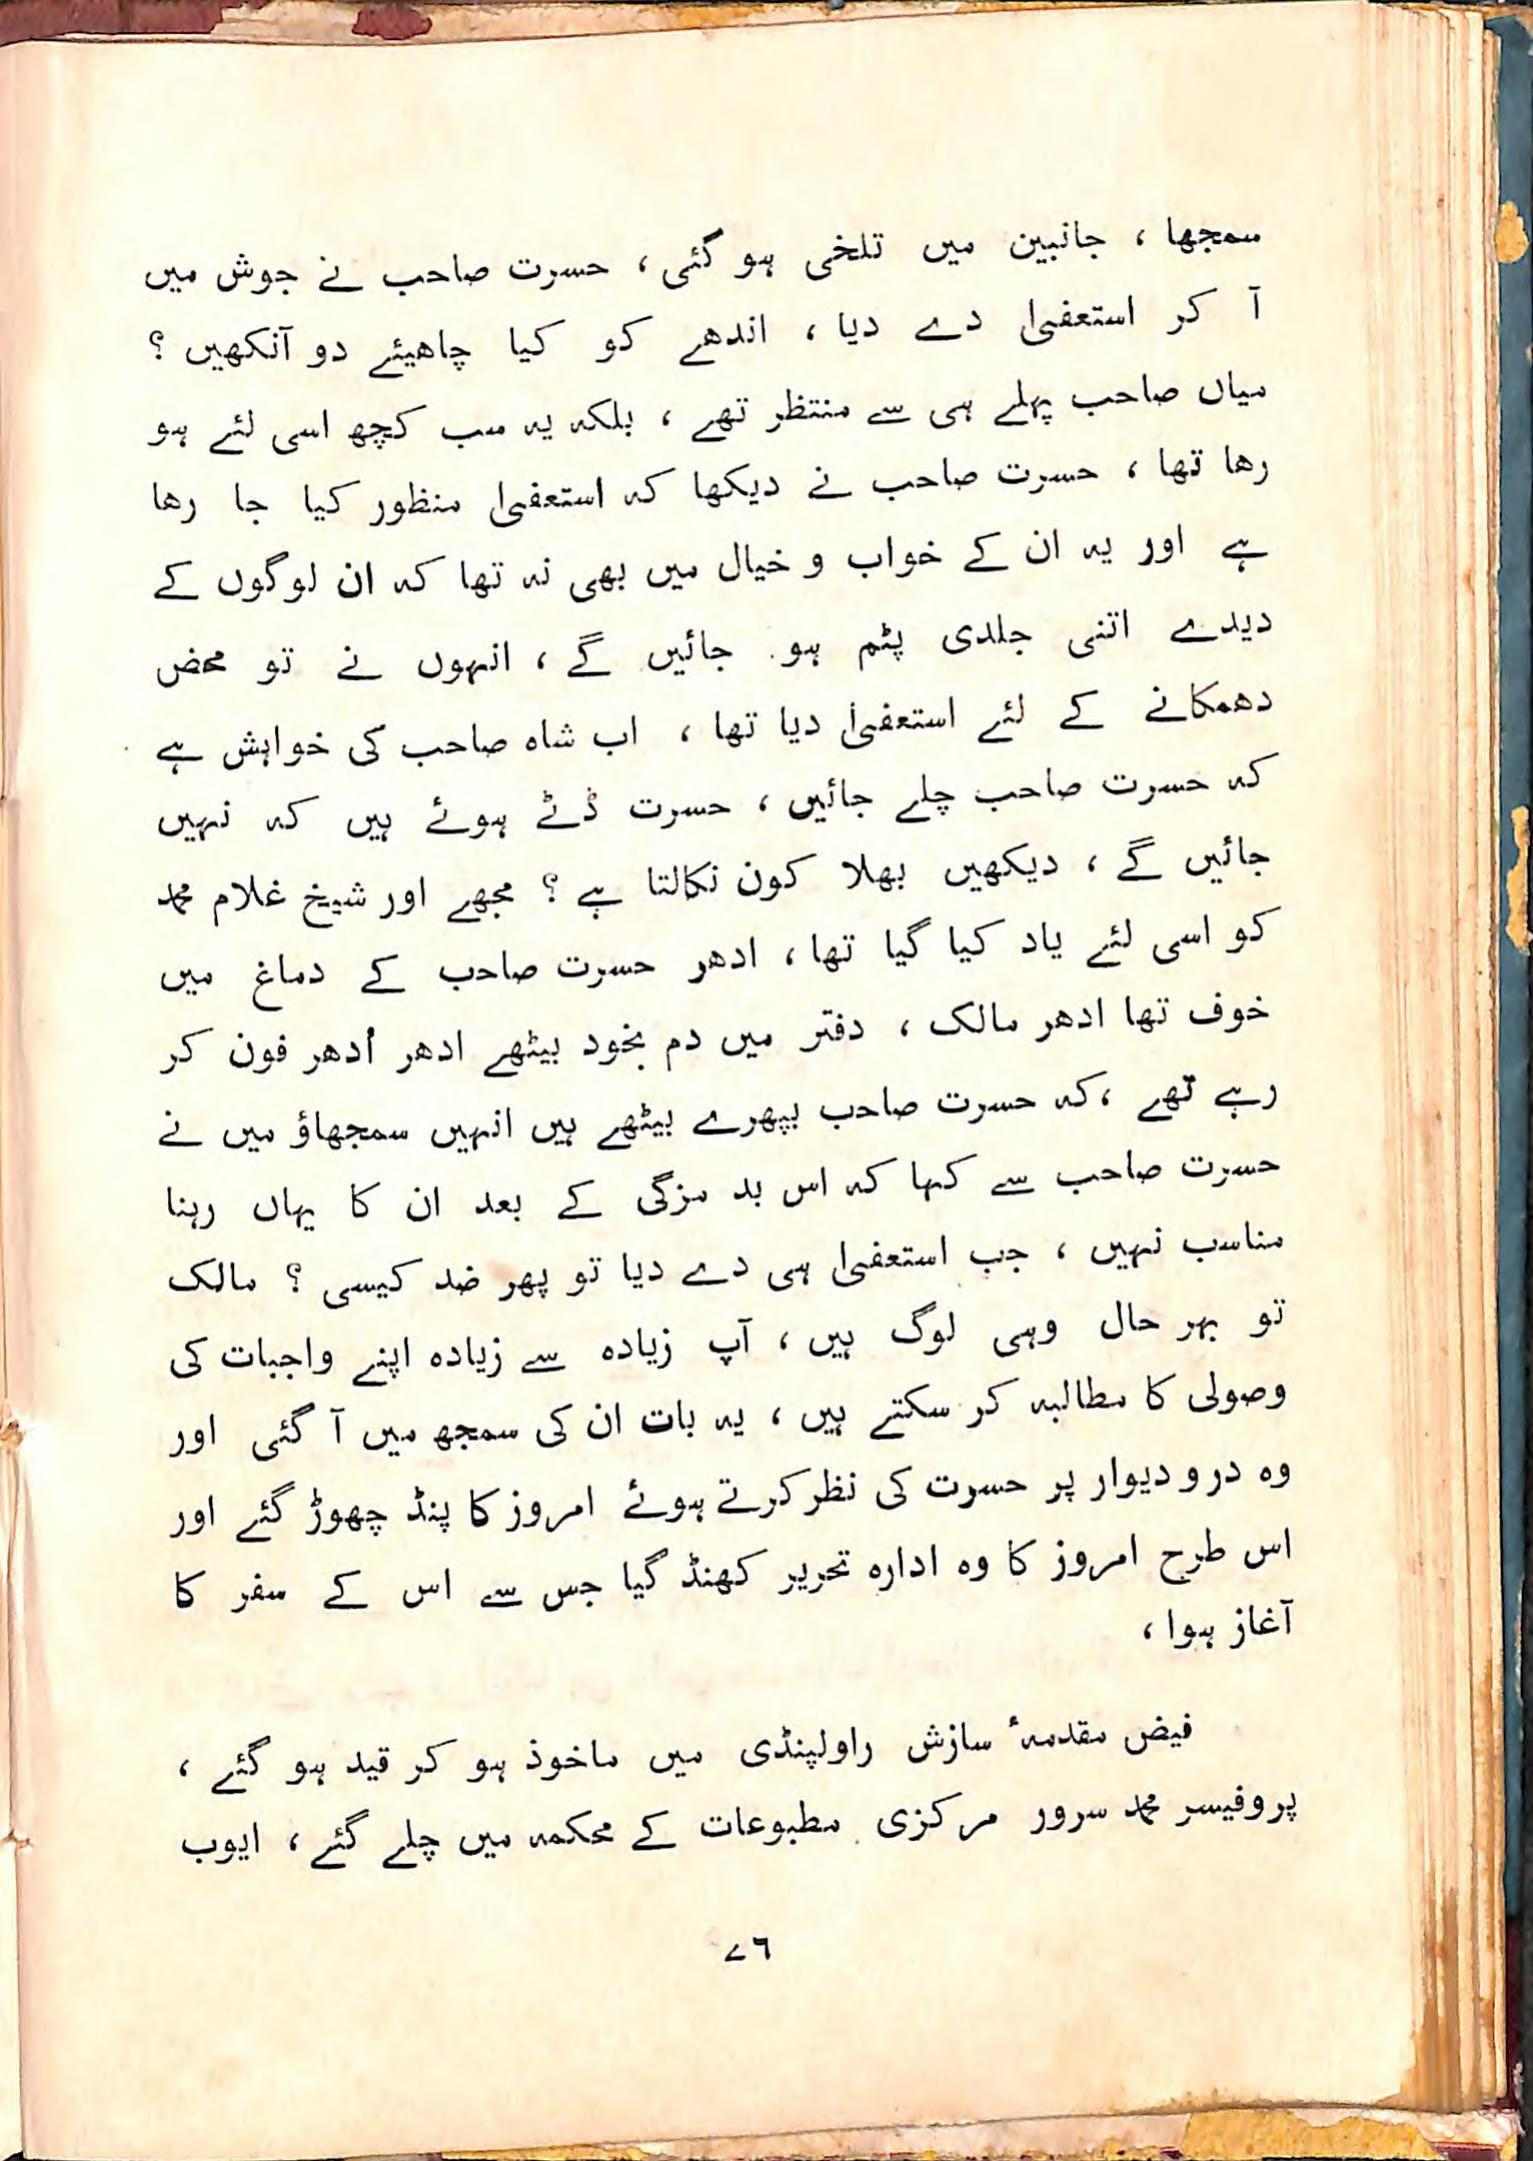 سمجھا ، جانبین میں تلخی ہو گئی ، حسرت صاحب نے جوش میں
آ کر استعفیٰ دے دیا ، اندھے کو کیا چاھیئے دو آنکھیں ؟
میاں صاحب پہلے ہی سے منتظر تھے ، بلکہ یہ سب کچھ اسی لئے ہو
رھا تھا ، حسرت صاحب نے دیکھا کہ استعفیٰ منظور کیا جا رھا
ہے اور یہ ان کے خواب و خیال میں بھی نہ تھا کہ ان لوگوں کے
دیدے اتنی جلدی پٹم ہو جائیں گے ، انہوں نے تو محض
دھمکانے کے لئے استعفیٰ دیا تھا ، اب شاہ صاحب کی خواہش ہے
کہ حسرت صاحب چلے جائیں ، حسرت ڈٹے ہوئے ہیں کہ نہیں
جائیں گے ، دیکھیں بھلا کون نکالتا ہے ؟ مجھے اور شیخ غلام محمد
کو اسی لئے یاد کیا گیا تھا ، ادھر حسرت صاحب کے دماغ میں
خوف تھا ادھر مالک ، دفتر میں دم بخود بیٹھے ادھر اُدھر فون کر
رہے تھے ، کہ حسرت صاحب بپھرے بیٹھے ہیں انہیں سمجھاؤ میں نے
حسرت صاحب سے کہا کہ اس بد مزگی کے بعد ان کا یہاں رہنا
مناسب نہیں ، جب استعفیٰ ہی دے دیا تو پھر ضد کیسی ؟ مالک
تو بہر حال وہی لوگ ہیں ، آپ زیادہ سے زیادہ اپنے واجبات کی
وصولی کا مطالبہ کر سکتے ہیں ، یہ بات ان کی سمجھ میں آ گئی اور
وہ در و دیوار پر حسرت کی نظر کرتے ہوئے امروز کا پنڈ چھوڑ گئے اور
اس طرح امروز کا وہ ادارہ تحریر کھنڈ گیا جس سے اس کے سفر کا
آغاز ہوا ،
فیض مقدمۂ سازش راولپنڈی میں ماخوذ ہو کر قید ہو گئے ،
پروفیسر محمد سرور مرکزی مطبوعات کے محکمہ میں چلے گئے ، ایوب
۷۶